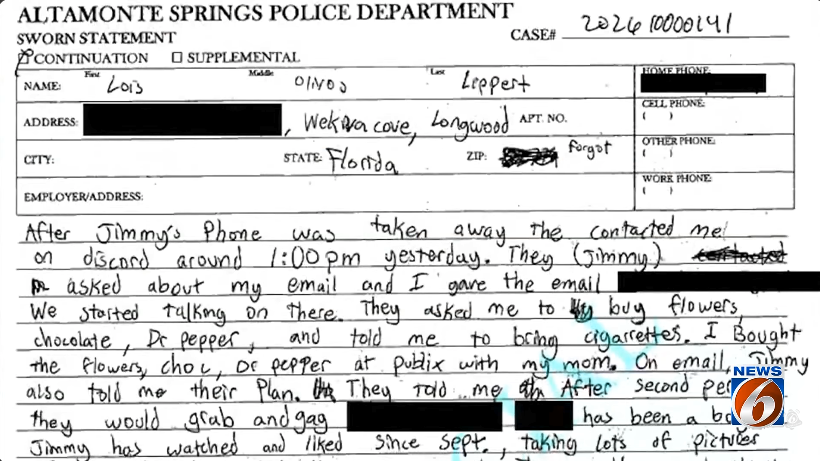 ALTAMONTE SPRINGS POLICE DEPARTMENT
SWORN STATEMENT
CASE# 202610000141
CONTINUATION SUPPLEMENTAL
NAME: First Lois Middle Olivos Last Lippert
HOME PHONE:
ADDRESS: , Wekiva cove, Longwood APT. NO.
CELL PHONE:
( )
CITY: STATE: Florida ZIP: forgot
OTHER PHONE:
( )
EMPLOYER/ADDRESS:
WORK PHONE:
( )
After Jimmy's Phone was taken away the contacted me
on discord around 1:00 pm yesterday. They (Jimmy)
asked about my email and I gave the email
We started talking on there. They asked me to buy flowers,
chocolate, Dr pepper, and told me to bring cigarrettes. I Bought
the flowers, choc, Dr pepper at publix with my mom. On email, Jimmy
also told me their Plan. They told me After second per
they would grab and gag has been a bo
Jimmy has watched and liked since sept., taking lots of pictures
NEWS
6